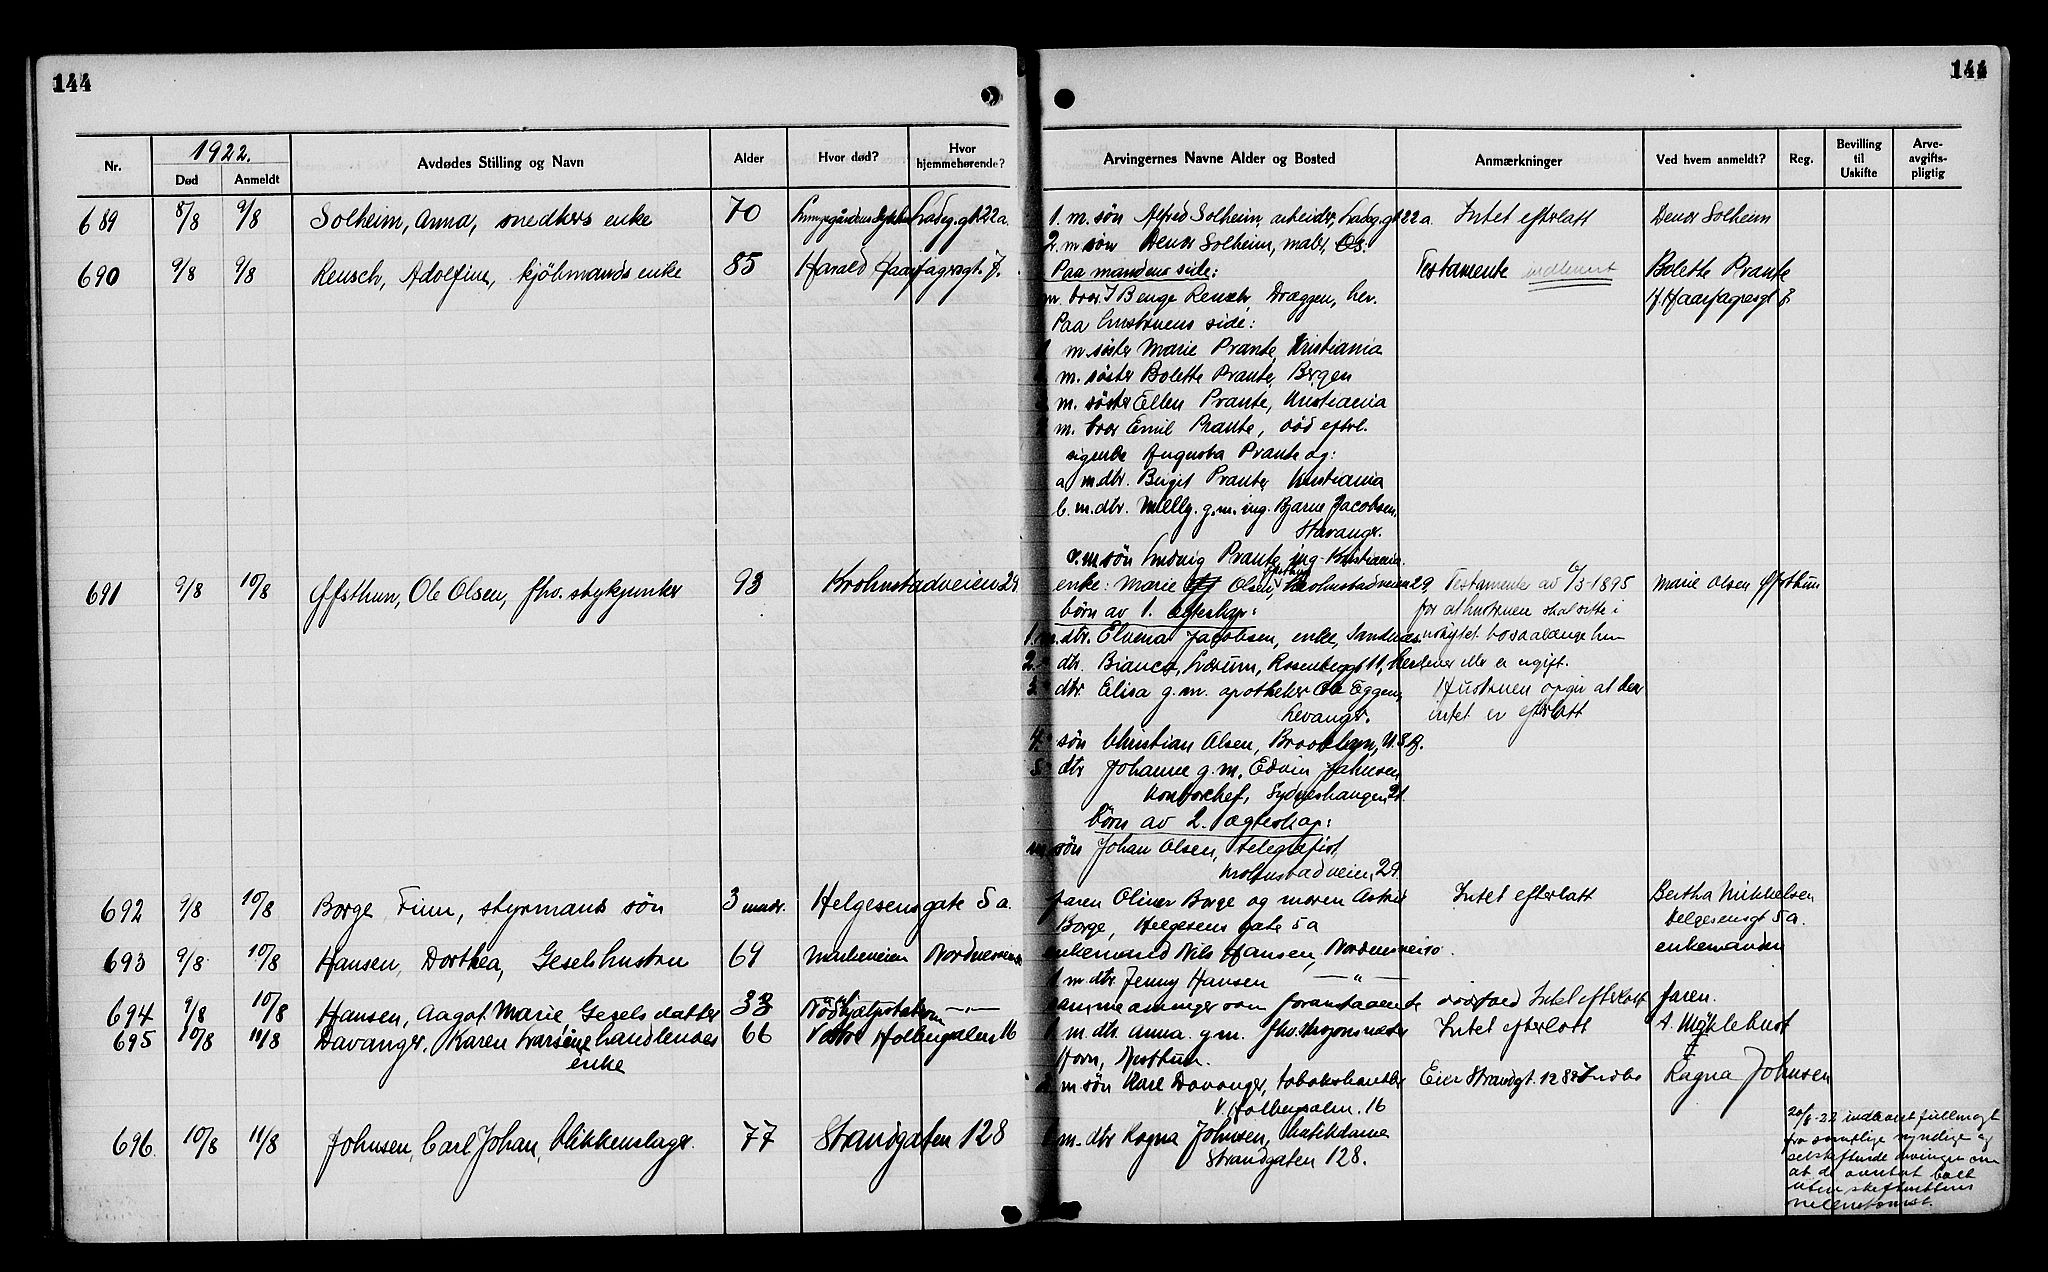 144
144
Nr.
1922.
Død
Anmeldt
Avdødes Stilling og Navn
Alder
Hvor død?
Hvor hjemmehørende?
Arvingernes Navne Alder og Bosted
Anmærkninger
Ved hvem anmeldt?
Reg.
Bevilling til Uskifte
Arve-avgifts-pligtig
689 8/8 9/8 Solheim, Anna, snedkers enke 70 Ladeg.gt 22a. 1. m. søn Alfred Solheim, arbeider, Ladeg.gt 22a. Intet efterlatt Solheim
2. m. søn Solheim, maler,
690 9/8 9/8 Rensch, Adolfine, kjøbmands enke 85 Harald Haarfagresgt. 7. Paa mandens side: Testamente indlevert Bolette Prante
m. bror J Benge Rensch, Dræggen, her. H. Haarfagresgt 7
Paa hustruens side:
1 m. søster Marie Prante, Kristiania
m. søster Bolette Prante, Bergen
m. søster Ellen Prante, Kristiania
m. bror Emil Prante, død eftrl.
Augusta Prante og:
a m. dtr. Birgit Prante, Kristiania
b. m. dtr. Milly. g. m. ing. Bjarne Jacobsen,
Stavanger.
c. m. søn Ludvig Prante, ing. Kristiania.
691 9/8 10/8 Øfsthun, Ole Olsen, fhv. stykjunker 93 Krohnstadveien 29. enke: Marie Olsen Øfsthun, Krohnstadveien 29. Testamente av 1895 Marie Olsen Øfsthun
børn av 1. ægteskap: for at hustruen skal sitte i
1. m. dtr. Elvena Jacobsen, enke, Sandnes. uskiftet bo saalænge hun
2. dtr. Bianca, Rosenbergsgt 11, lever eller er ugift.
3. dtr. Elisa g. m. apotheker Ole Eggen, Hustruen opgir at der
Levanger. intet er efterlatt
4. søn Christian Olsen, Brooklyn, U.S.A.
5. dtr Johanne g. m. Edvin Johnsen,
kontorchef, Sydneshaugen 21.
børn av 2. ægteskap:
m. søn Johan Olsen, telegrafist,
Krohnstadveien 29.
692 9/8 10/8 Borge Finn, styrmans søn 3 mndr. Helgesens gate 5 a. faren Oliver Borge og moren Astrid Intet efterlatt Bertha Mikkelsen
Borge, Helgesens gate 5 a Helgesensgt 5a.
693 9/8 10/8 Hansen, Dorthea, Geselshustru 69 enkemand Nils Hansen, enkemanden
1 m dtr. Jenny Hansen — " —
694 9/8 10/8 Hansen, Aagot Marie Gesels datter 33 — " — samme arvinger som foranstaaende Intet efterlatt faren.
695 10/8 11/8 Davanger, Karen Larsine handlendes 66 Vestre Holbergsalm. 16 1 m. dtr. Anna g. m. fhv. Intet efterlatt A. Myklebust
enke Horn, Nesttun.
2 m søn Karl Davanger, tobakshandler
V. Holbergsalm. 16
696. 10/8 11/8 Johnsen, Carl Johan, blikkenslager. 77 Strandgaten 128 1 m. dtr Ragna Johnsen, butikdame Eier Strandgt. 128 Ragna Johnsen
Strandgaten 128.
20/8-22 indleveret fullmagt
fra samtlige myndige og
selvskiftende arvinger om
at de overtar boet
uten skifterettens
mellemkomst.